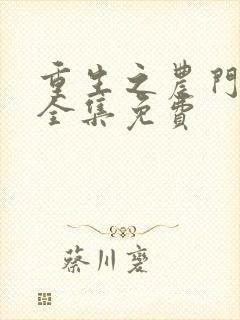 重生之農門
全集免費
蔡川褰